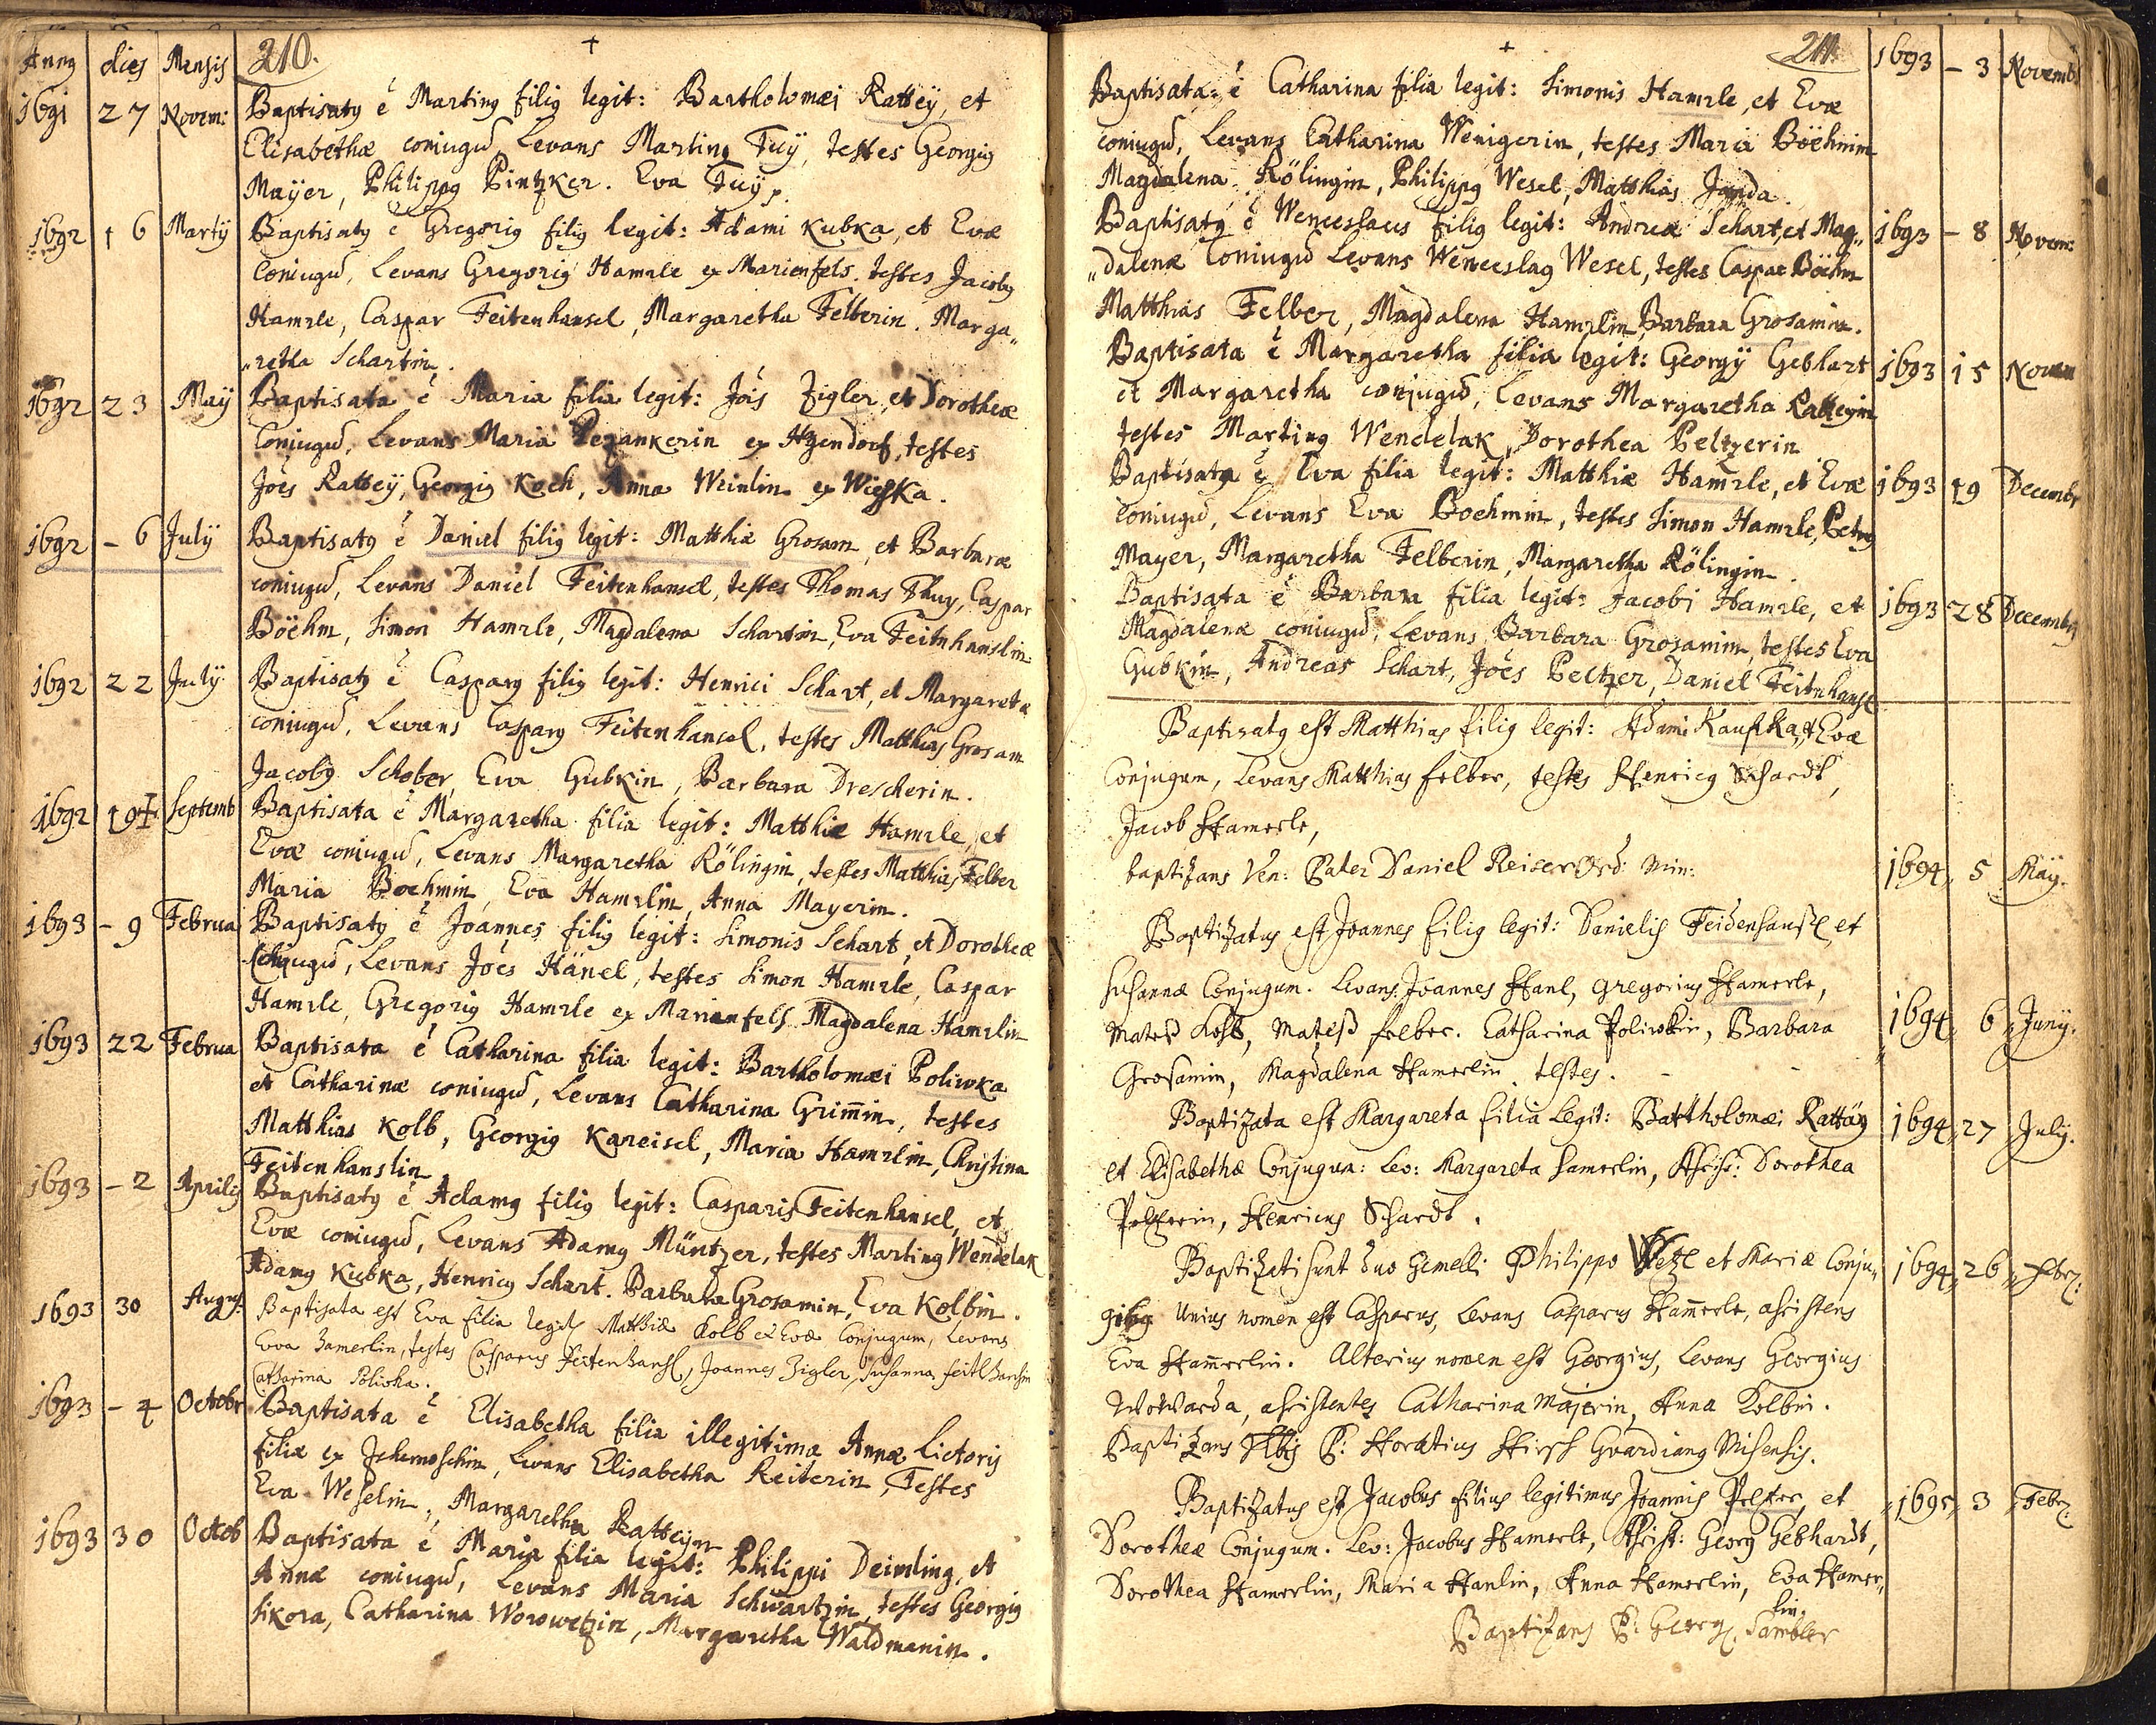 Anno dies Mensis 210.
1691 27 Novem: Baptisatg ē Marting filig legit: Bartholomæi Rattey, et
Elisabethæ coniugũ, Levans Marting Fuÿ, testes Georgig
Maÿer, Philippg Pintzker. Eva Fuÿ.
1692 16 Martÿ Baptisatg ē Gregorig filig legit: Adami Kubka, et Evæ
Coniugũ, Levans Gregorig Hamrle ex Marienfels. testes Jacobg
Hamrle, Caspar Feitenhansel, Margaretha Felberin. Marga„
„retha Schartin.
1692 23 Maÿ Baptisata ē Maria filia legit: Jois Zigler, et Dorotheæ
Coniugũ, Levans Maria Pezankerin ex Hzendorf, testes
Joēs Rattey, Georgig Koch, Anna Weinlin ex Wieska.
1692 – 6 Julÿ Baptisatg ē Daniel filig legit: Matthiæ Grosam, et Barbaræ
coniugũ, Levans Daniel Feitenhansel, testes Thomas Thuy, Caspar
Böehm, Simon Hamrle, Magdalena Schartin, Eva Feitnhanslin.
1692 22 Julÿ Baptisatg ē Casparg filig legit: Henrici Schart, et Margaretæ
coniugũ, Levans Casparg Feitenhansel, testes Matthias Grosam
Jacobg Schober, Eva Gubkin, Barbara Drescherin.
1692 19 Septemb Baptisata ē Margaretha filia legit: Matthiæ Hamrle, et
Evæ coniugũ, Levans Margaretha Rölingin, testes Matthias Felber
Maria Boehmin, Eva Hamrlin, Anna Mayerin.
1693 – 9 Februa Baptisatg ē Joannes filig legit: Simonis Schart, et Dorotheæ
Coniugũ, Levans Joēs Hänel, testes Simon Hamrle, Caspar
Hamrle, Gregorig Hamrle ex Marienfels. Magdalena Hamrlin
1693 22 Februa Baptisata ē Catharina filia legit: Bartholomæi Poliwka
et Catharinæ coniugũ, Levans Catharina Grim̄in, testes
Matthias Kolb, Georgig Kareisel, Maria Hamrlin, Christina
Feitenhanslin
1693 – 2 Aprilis Baptisatg ē Adamg filig legit: Casparis Feitenhansel, et
Evæ coniugũ, Levans Adamg Müntzer, testes Marting Wendelak
Adamg Kubka, Henricg Schart. Barbara Grosamin, Eva Kolbin.
1693 30 Augus: Baptisata est Eva filia legit: Matthiæ Kolb et Evæ Conjugum, Levans
Evva Hamerlin, testes Casparus Feitenhansl, Joannes Zigler, Susanna
Catharina Polivka.
1693 – 4 Octobr Baptisata ē Elisabetha filia illegitima Annæ Lictoris
filiæ ex Jehernoschin, Levans Elisabetha Reiterin, Testes
Eva Weselin, Margaretha Ratteyin
1693 30 Octob Baptisata ē Maria filia legit: Philippi Deimling, et
Annæ coniugũ, Levans Maria Schwartzin, testes Georgig
Sikora, Catharina Worowetzin, Margaretha Waldmanin.
211. 1693 – 3 Novemb
Baptisata ē Catharina filia legit: Simonis Hamrle, et Evæ
coniugũ, Levans Catharina Wenigerin, testes Maria Böehmin
Magdalena Rölingin, Philippg Wesel, Matthias Janda.
Baptisatg ē Wenceslaus filig legit: Andreæ Schart, et Mag„ 1693 – 8 Novem:
„dalenæ Coniugũ Levans Wenceslag Wesel, testes Caspar Böehm
Matthias Felber, Magdalena Hamrlin, Barbara Grosamin.
Baptisata ē Margaretha filia legit: Georgÿ Gebhart 1693 15 Novem
et Margaretha conjugũ, Levans Margaretha Ratteyin
testes Marting Wendelak, Dorothea Peltzerin
Baptisata ē Eva filia legit: Matthiæ Hamrle, et Evæ 1693 19 Decembr
coniugũ, Levans Eva Boehmin, testes Simon Hamrle, Petrg
Mayer, Margaretha Felberin, Margaretha Rölingin.
Baptisata ē Barbara filia legit: Jacobi Hamrle, et 1693 28 Decembrs
Magdalenæ coniugũ, Levans Barbara Grosamin, testes Eva
Gubkin, Andreas Schart, Joēs Peltzer, Daniel Feitnhansl
Baptisatg est Matthias filig legit: Adami Kaupka, et Evæ
Conjugum, Levans Matthias Felber, testes Henricg Schardt,
Jacob Hamerle,
baptizans Ven: Pater Daniel Reiser Ord: Min: 1694 5 Maÿ.
Baptizatus est Joannes filig legit: Danielis Feidenhansl, et
Susannæ Conjugum. Levans Joannes Hanl, Gregorius Hamerle,
Mateß Kolb, Mateß Felber. Catharina Poliwkin, Barbara 1694 6 Junÿ.
Grosamin, Magdalena Hamerlin testes.
Baptizata est Margareta filia Legit: Bartholomæi Rattäy 1694 27 Julÿ.
et Elisabethæ Conjugum: Lev: Margareta Hamerlin, Assist: Dorothea
Peltzerin, Henricus Schardt.
Baptizati sunt duo Gemelli Philippo Wetzl et Mariæ Conju„ 1694 26
gibg Unius nomen est Casparus, Levans Casparus Ham̄erle, assistens
Eva Ham̄erlin. Alterius nomen est Georgius, Levans Georgius
Wokarda, assistentes Catharina Majerin, Anna Kolbin.
Baptizans P: Horatius Hirsch Gvardiang Misensis.
Baptizatus est Jacobus filius legitimus Joannis Peltzer, et 1695 3 Febr:
Dorotheæ Conjugum. Lev: Jacobus Hamerle, Assist: Georg Gebhardt,
Dorothea Hamerlin, Maria Hanlin, Anna Hamerlin, Eva Hamer„
lin.
Baptizans P: Georg. Sambler